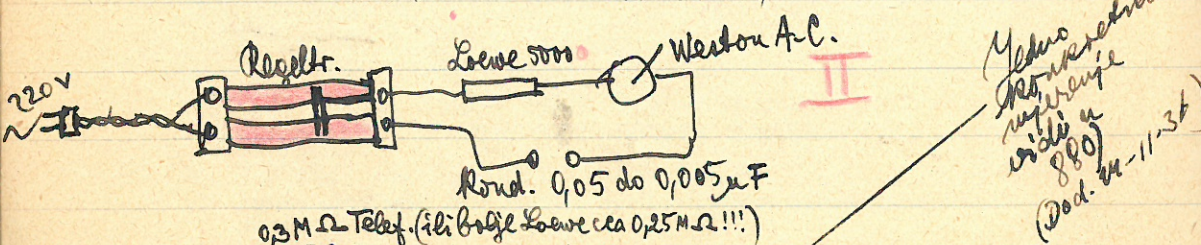 Regeltr.
Loewe 5000
Weston A-C.
II
220V
Kond. 0,05 do 0,005 µF
0,3 MΩ Telef. (ili bolje Loewe cca 0,25 MΩ!!!)
Jedno
konkretno
mjerenje
vidi u
880)
(Dod. 24-11-36)